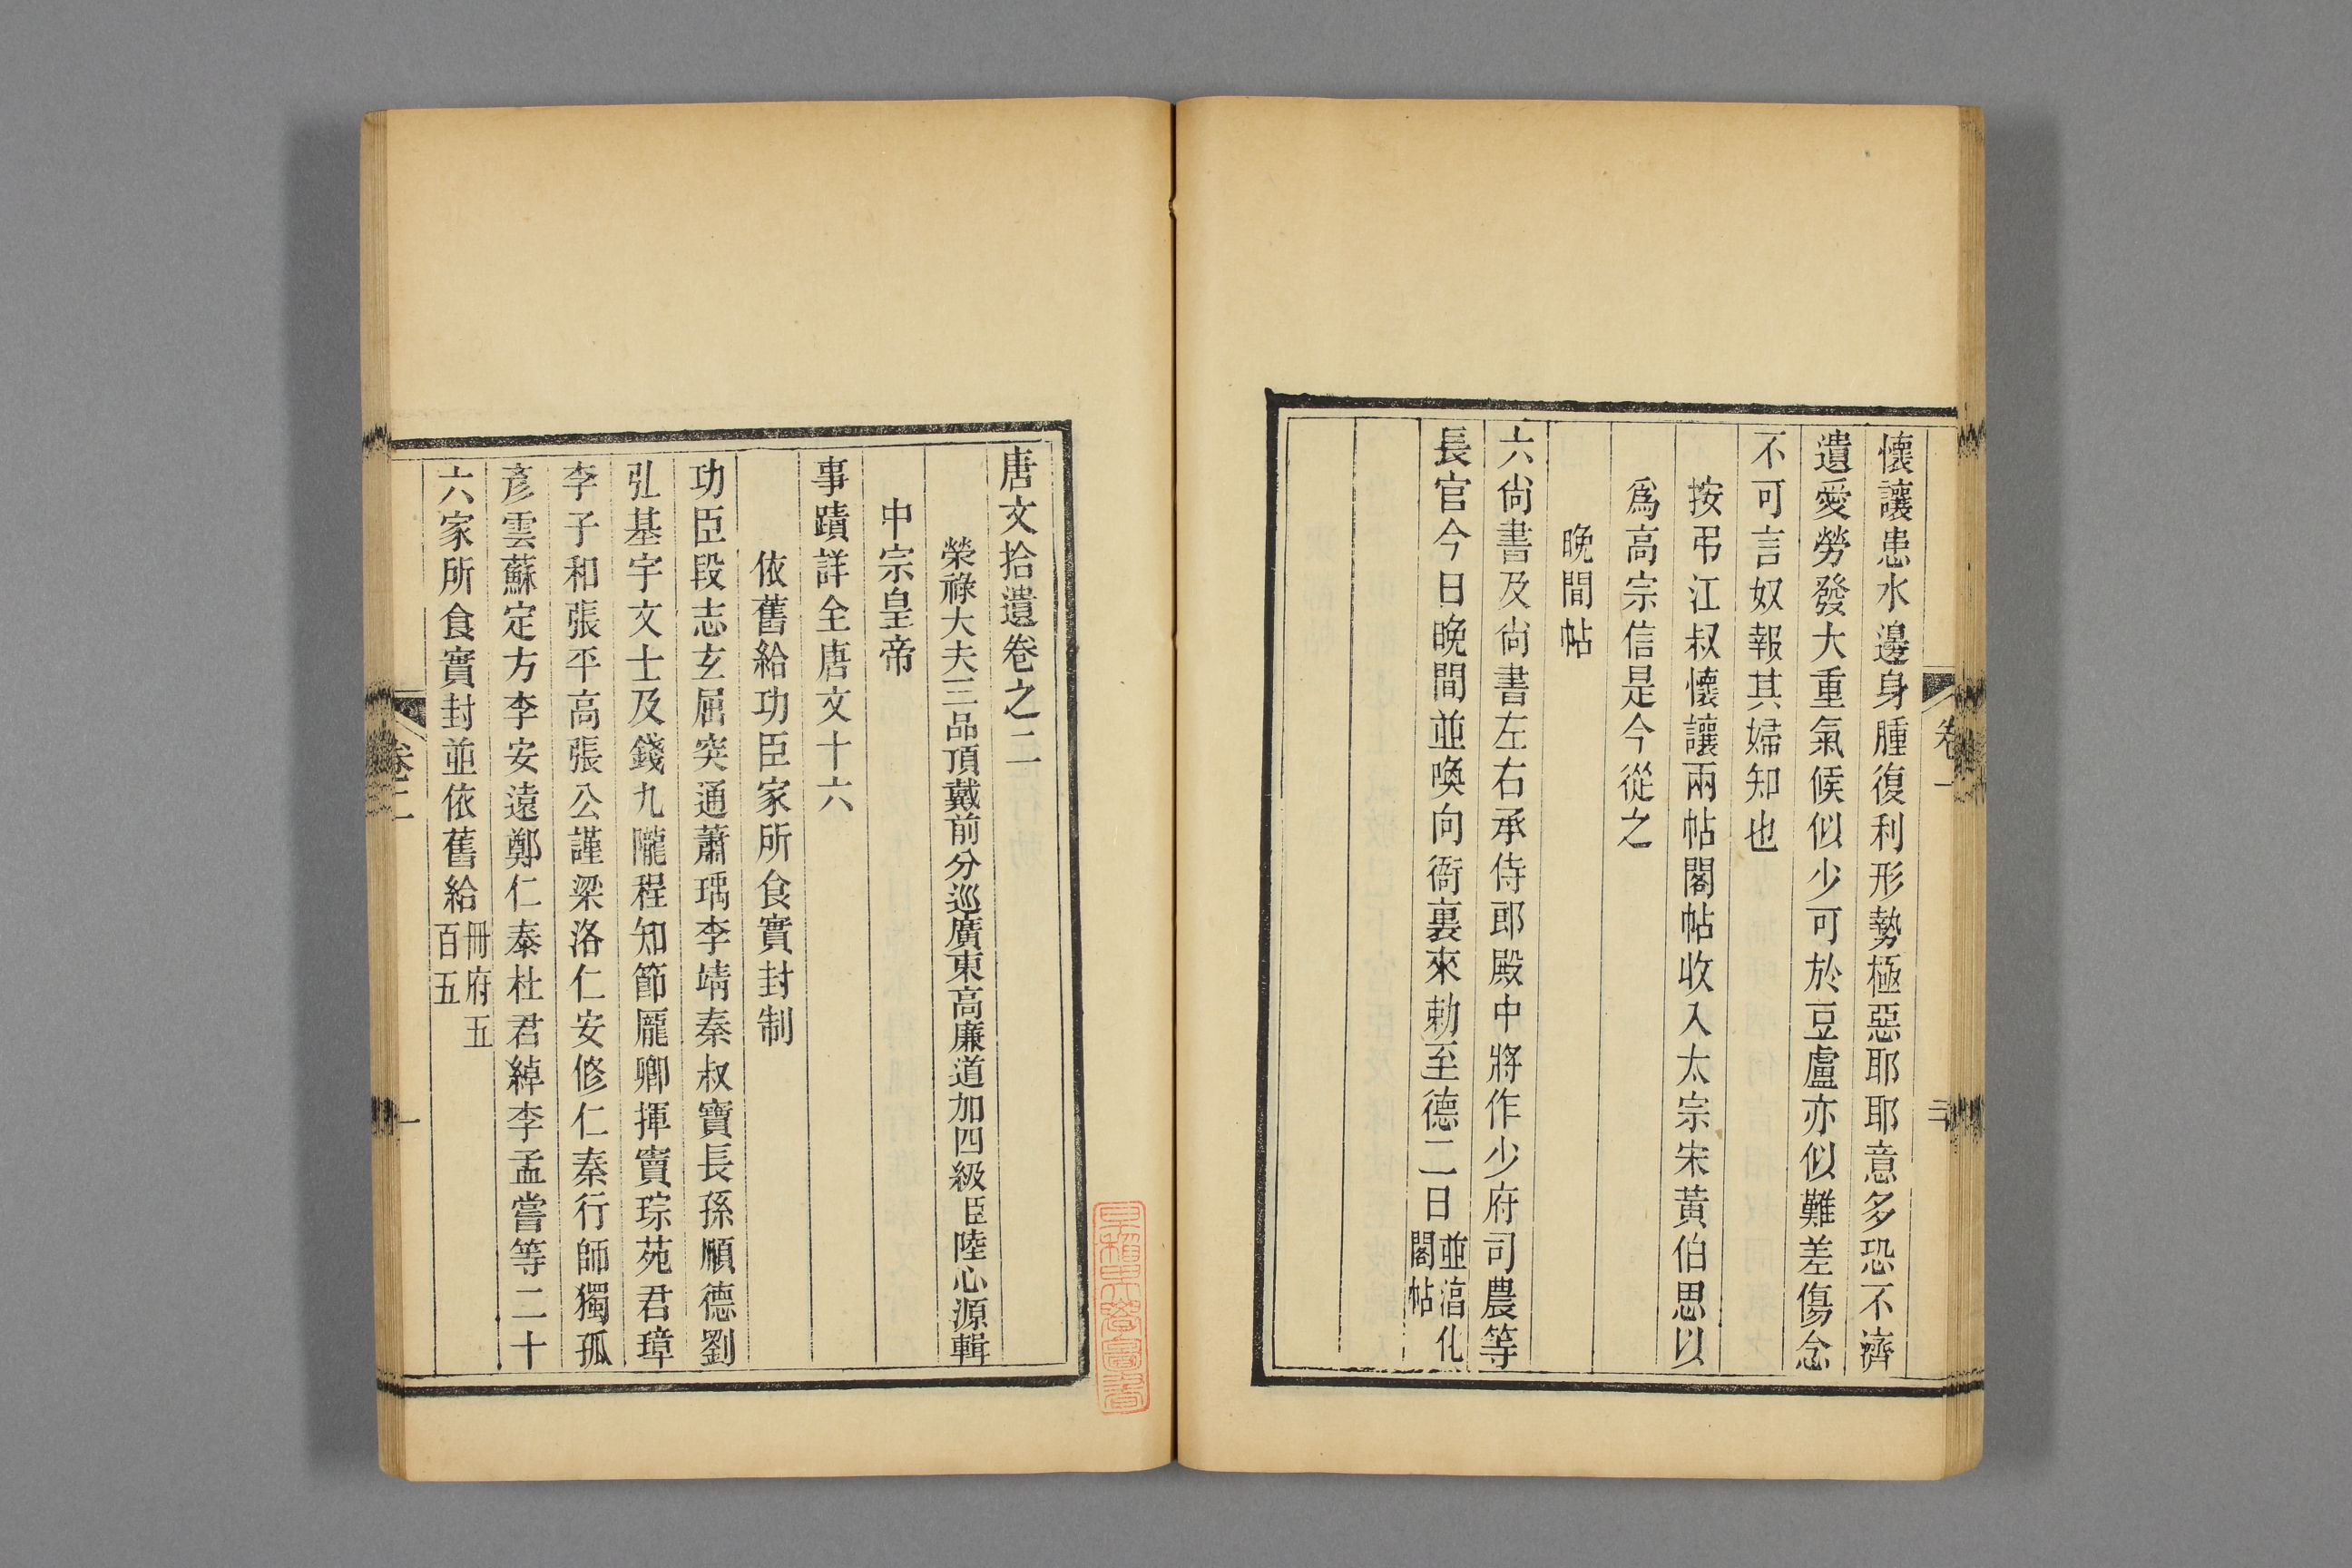 懷讓患水邊身腫復利形勢極惡耶耶意多恐不濟
遺愛勞發大重氣候似少可於豆盧亦似難差傷念
不可言奴報其婦知也
按弔江叔懷讓兩帖閣帖收入太宗宋黃伯思以
爲高宗信是今從之
晚間帖
六尙書及尙書左右承侍郎殿中將作少府司農等
長官今日晚間並喚向衙裏來勅至德二日
並湻化
閣帖
卷一
三
唐文拾遺卷之二
榮祿大夫三品頂戴前分巡廣東高廉道加四級臣陸心源輯
中宗皇帝
事蹟詳全唐文十六
依舊給功臣家所食實封制
功臣段志玄屈突通蕭瑀李靖秦叔寶長孫順德劉
弘基宇文士及錢九隴程知節龐卿揮竇琮苑君璋
李子和張平高張公謹梁洛仁安修仁秦行師獨孤
彥雲蘇定方李安遠鄭仁泰杜君綽李孟嘗等二十
六家所食實封並依舊給
冊府五
百五
卷二
一
早稻田大學圖書